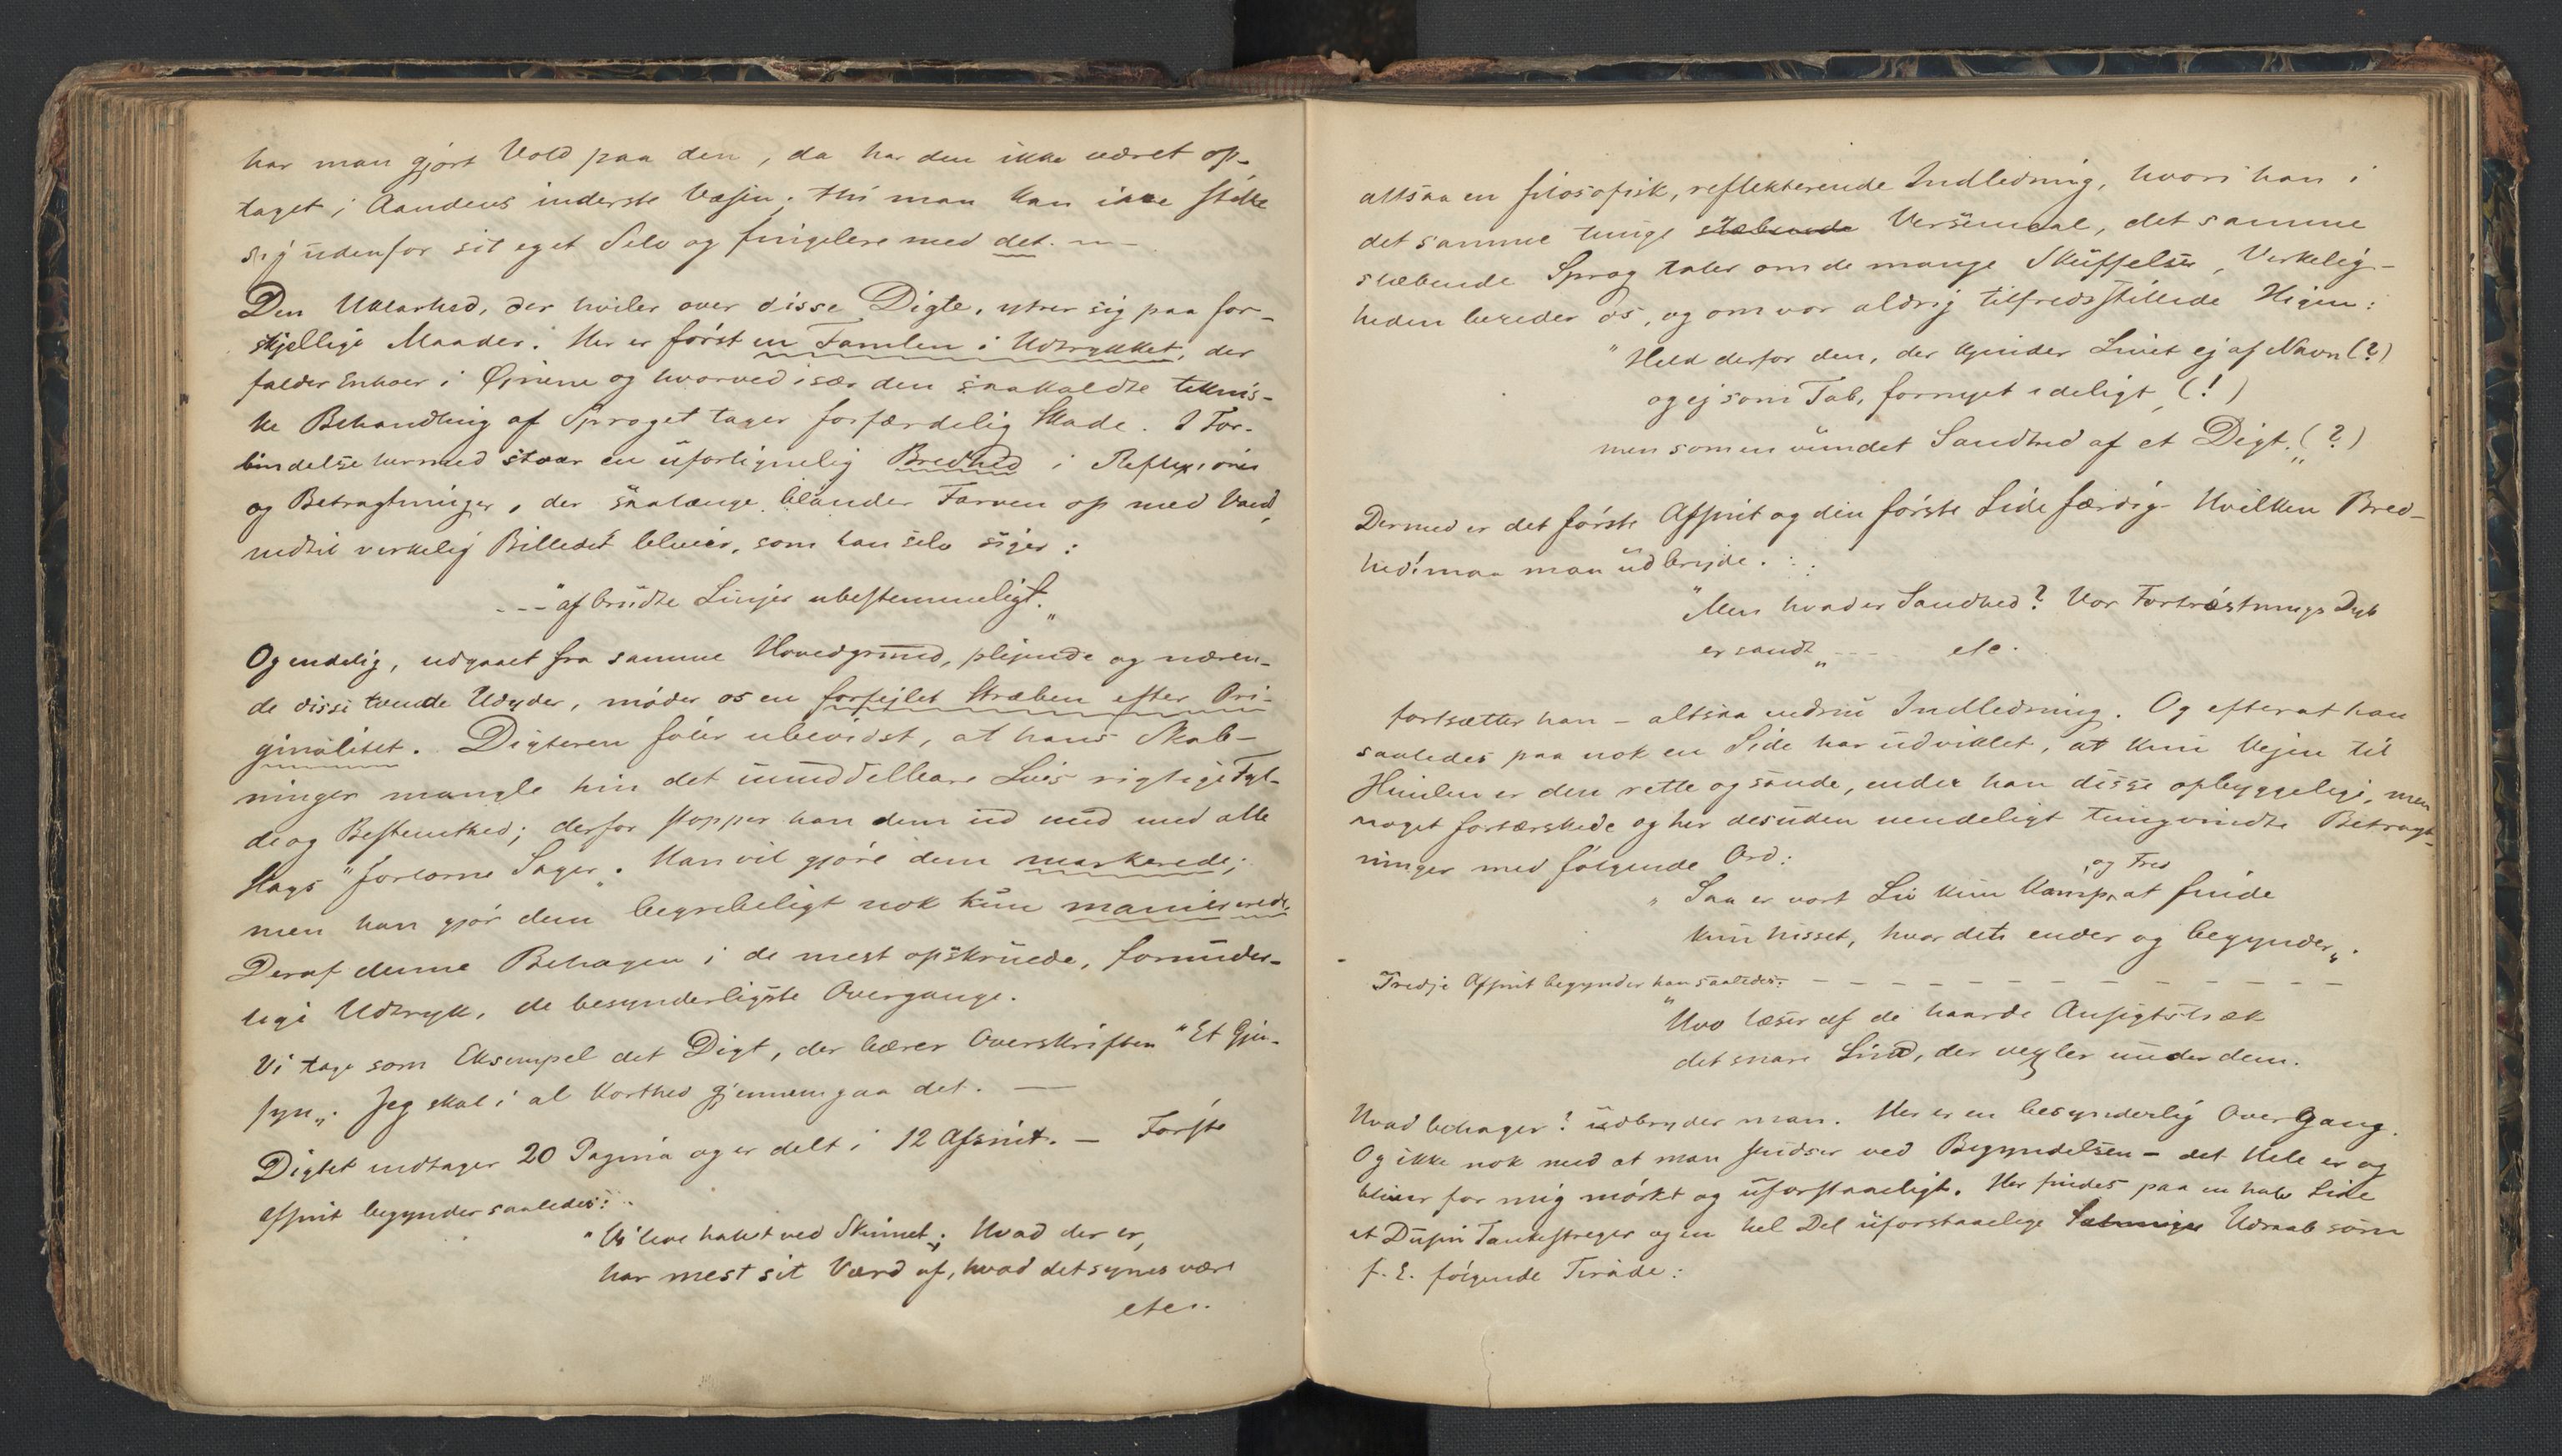 har man gjört Vold paa den, da har den ikke været op-
taget i Aandens inderste Væsen; thi man kan ikke stille
sig udenfor sit eget Selv og fingelere med det. —
Den Uklarhed, der hviler over disse Digte, ytrer sig paa for-
skjellige Maader. Her er först en Famlen i Udtrykket, der
falder Enhver i Öjnene og hvorved især den saakaldte teknis-
ke Behandling af Sproget tager forfærdelig Skade. I For-
bindelse hermed staar en uforlignelig Bredhed i Reflexioner
og Betragtninger, der saalænge blander Farven op med Vand,
indtil virkelig Billedet bliver, som han selv siger:
--- "afbrudte Linjer ubestemmeligt."
Og endelig, udgaaet fra samme Hovedgrund, plejende og næren-
de disse tvende Udyder, möder os en forfejlet Stræben efter Ori-
ginalitet. Digteren föler ubevidst, at hans Skab-
ninger mangle hin det umiddelbare Livs rigtige Fyl-
de og Bestemthed; derfor stopper han dem ud med alle
Slags "forlorne Sager". Han vil gjöre dem markerede;
men han gjör dem begribeligt nok kun manierede.
Deraf denne Behagen i de mest opskruede, forunder-
lige Udtryk, de besynderligste Overgange.
Vi tage som Eksempel det Digt, der bærer Overskriften "Et Gjen-
syn". Jeg skal i al Korthed gjennemgaa det. —
Digtet indtager 20 Pagina og er delt i 12 Afsnit. — Förste
Afsnit begynder saaledes:
"Vi leve halvt ved Skinnet; Hvad der er,
har mest sit Værd af, hvad det synes være
etc.
altsaa en filosofisk, reflekterende Indledning, hvori han i
det samme tunge slæbende Versemaal, det samme
slæbende Sprog taler om de mange Skuffelser, Virkelig-
heden bereder os, og om vor aldrig tilfredsstillede Higen:
"Held derfor den, der kjender Livet ej af Navn (?)
og ej som Tab, fornyet ideligt, (!)
men som en vundet Sandhed af et Digt." (?)
Dermed er det förste Afsnit og den förste Side færdig. Hvilken Bred-
hed! maa man udbryde.
"Men hvad er Sandhed? Vor Fortröstnings Dyb
er sandt" --- etc.
fortsætter han – altsaa endnu Indledning. Og efterat han
saaledes paa nok en Side har udviklet, at kun Vejen til
Himlen er den rette og sande, ender han disse opbyggelige, men
noget fortærskede og her desuden uendeligt tungvindte Betragt-
ninger med fölgende Ord:
og Fred
"Saa er vort Liv kun Kamp, at finde
kun hisset, hvor det ender og begynder".
Tredje Afsnit begynder han saaledes: – – – – – – – – – – – – – –
"Hvo læser af de haarde Ansigtstræk
det snare Sind, der vexler under dem.
Hvad behager? udbryder man. Her er en besynderlig Overgang.
Og ikke nok med at man studser ved Begyndelsen – det Hele er og
bliver for mig mörkt og uforstaaeligt. Her findes paa en halv Side
et Dusin Tankestreger og en hel Del uforstaaelige Sætninger Udraab som
f. E. fölgende Tirade: